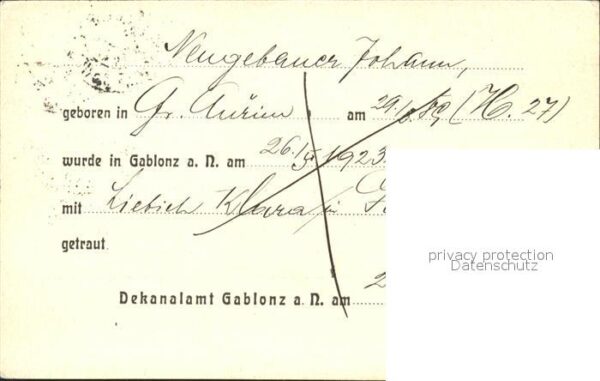 Neugebauer Johann,
geboren in Gr. Aurim am 29./ (H. 27)
wurde in Gablonz a. N. am 26./ 1923
mit Liebich Klara in
getraut.
privacy protection
Datenschutz
Dekanalamt Gablonz a. N. am 2